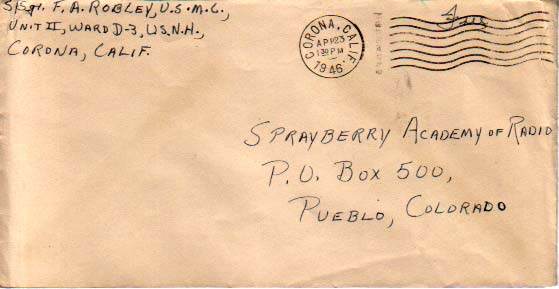 S/Sgt. F. A. ROBLEY, U.S.M.C.,
UNIT II, WARD D-3, U.S.N.H.,
CORONA, CALIF.
CORONA, CALIF.
APR 23
1 30 PM
1946
Free
SPRAYBERRY ACADEMY OF RADIO
P.O. BOX 500,
PUEBLO, COLORADO